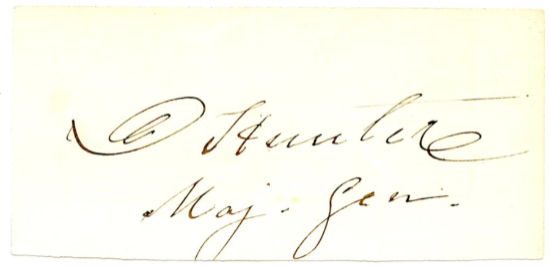 D Hunter
Maj. Gen.